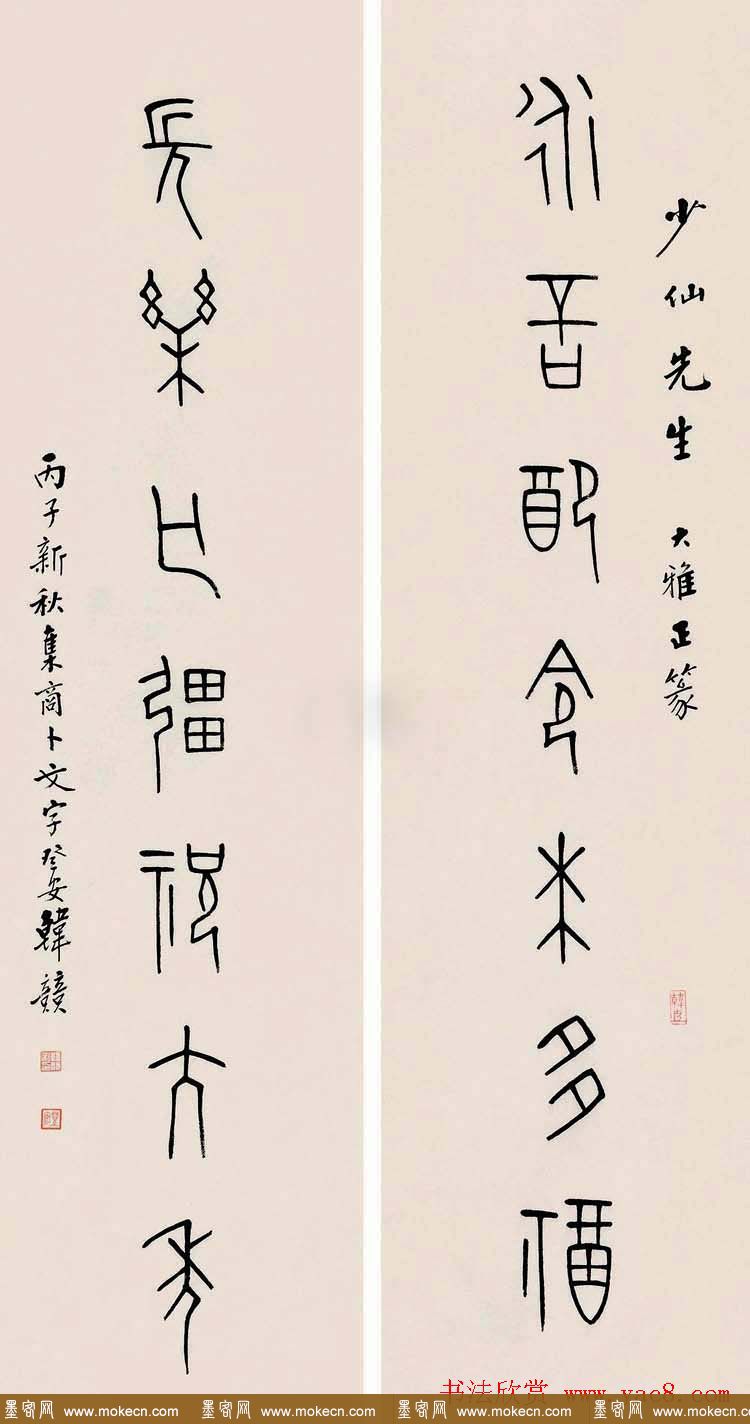 少仙先生 大雅正篆
永言配令來多福
長樂亡彊祝大年
丙子新秋集商卜文字登安韓競
书法欣赏 www.yac8.com
墨客网 www.mokecn.com 墨客网 www.mokecn.com 墨客网 www.mokecn.com 墨客网 www.mokecn.com